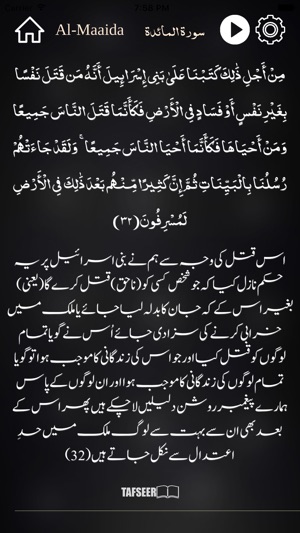 Carrier 7:54 PM
Al-Maaida سورة المائدة
مِنْ أَجْلِ ذَٰلِكَ كَتَبْنَا عَلَىٰ بَنِي إِسْرَائِيلَ أَنَّهُ مَن قَتَلَ نَفْسًا
بِغَيْرِ نَفْسٍ أَوْ فَسَادٍ فِي الْأَرْضِ فَكَأَنَّمَا قَتَلَ النَّاسَ جَمِيعًا
وَمَنْ أَحْيَاهَا فَكَأَنَّمَا أَحْيَا النَّاسَ جَمِيعًا ۚ وَلَقَدْ جَاءَتْهُمْ
رُسُلُنَا بِالْبَيِّنَاتِ ثُمَّ إِنَّ كَثِيرًا مِّنْهُم بَعْدَ ذَٰلِكَ فِي الْأَرْضِ
لَمُسْرِفُونَ (٣٢)
اس قتل کی وجہ سے ہم نے بنی اسرائیل پر یہ
حکم نازل کیا کہ جو شخص کسی کو (ناحق) قتل کرے گا (یعنی)
بغیر اس کے کہ جان کا بدلہ لیا جائے یا ملک میں
خرابی کرنے کی سزا دی جائے اُس نے گویا تمام
لوگوں کو قتل کیا اور جو اس کی زندگانی کا موجب ہوا تو گویا
تمام لوگوں کی زندگانی کا موجب ہوا اور ان لوگوں کے پاس
ہمارے پیغمبر روشن دلیلیں لا چکے ہیں پھر اس کے
بعد بھی ان سے بہت سے لوگ ملک میں حدِ
اعتدال سے نکل جاتے ہیں (32)
TAFSEER